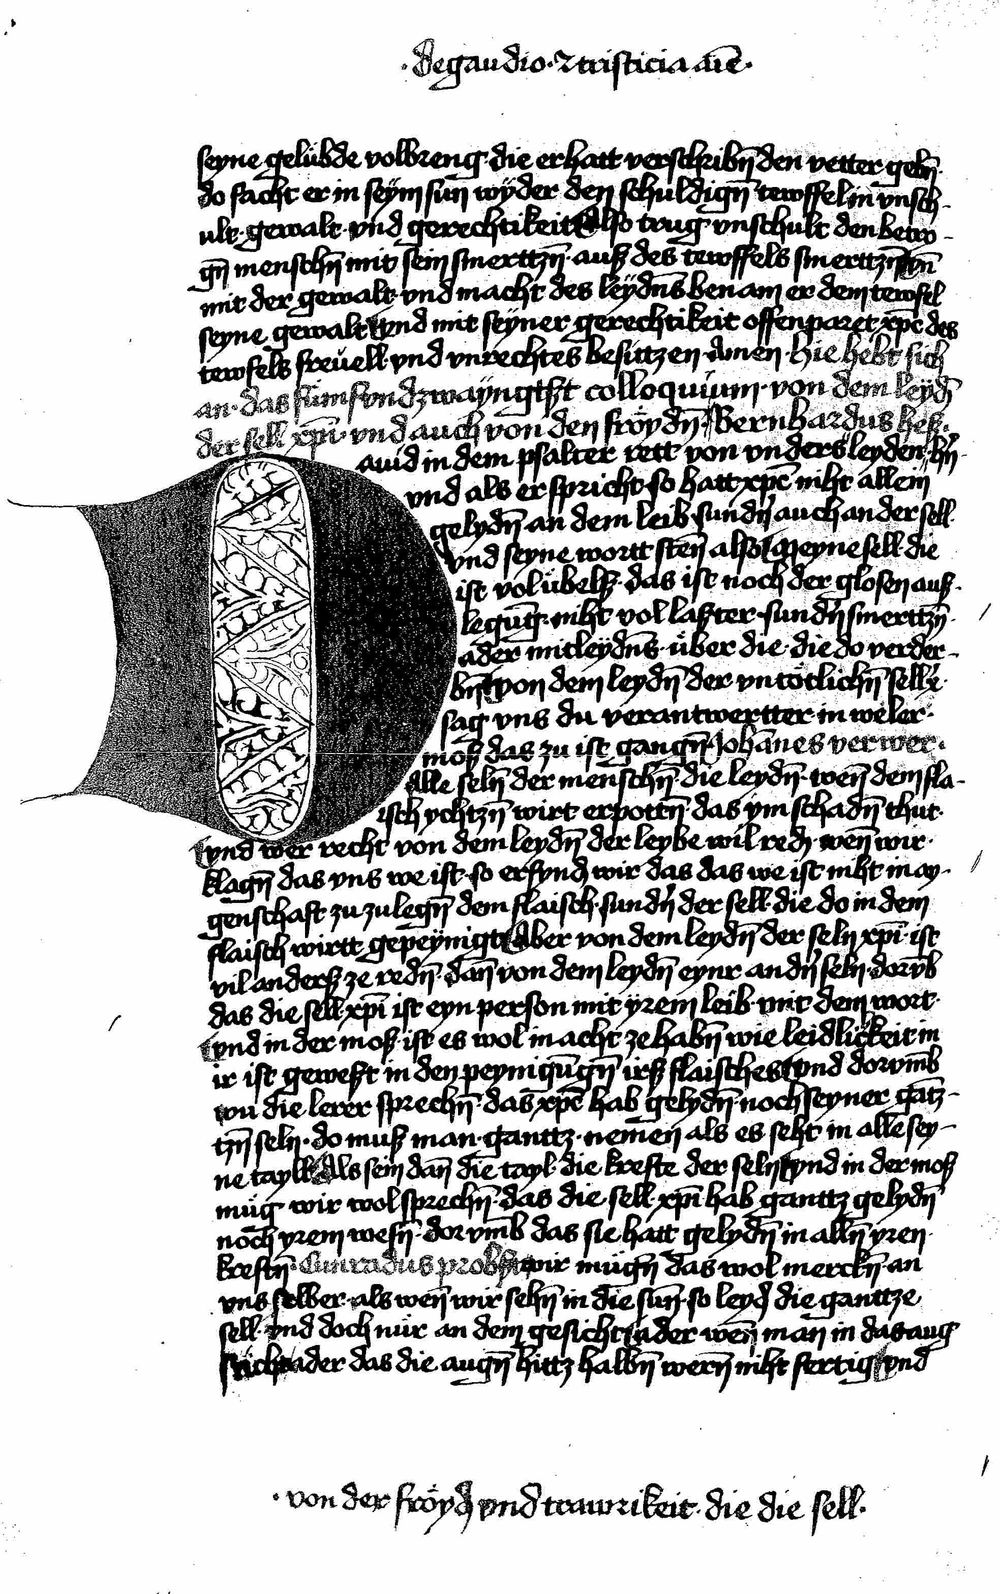 ·de gaudio · ⁊ tristicia aīe·
seyne gelübde volbreng· die er hatt verschribn̄ den vetter gebn̄·
do facht er in seym sun wyder den schuldign̄ tewffel in vnsch-
ult· gewalt· vnd gerechtikeit Also trug vnschult den betro-
gn̄ menschn̄ mit sein smerttzn̄· auß des tewffels smerttzn̄ vn̄
mit der gewalt· vnd macht des leydn̄s benam er dem tewfel
seyne gewalt vnd mit seyner gerechtikeit offenparet xp̄c des
tewfels freuell· vnd vnrechtes besittzen· Amen· hie hebt sich
an· das fümfvndzwayngtst colloquium· von dem leydn̄
der sell xp̄i· vnd auch von den fröydn̄· Bernhardus hek·
Dauid in dem psalter rett von vnders leyden hn̄·
vnd als er spricht· so hatt xp̄c niht allein
gelydn̄ an dem leib· sundn̄ auch an der sell
vnd seyne wortt sten̄ also Meyne sell die
ist vol übelß· das ist noch der glosen auß-
legūg· niht vol laster· sundn̄ smerttzn̄·
ader mitleydn̄s· über die· die do verder-
bn̄ von dem leydn̄ der vntötlichn̄ sell
sag vns du verantwertter in weler·
moß das zu ist gangn̄· Johānes verwer·
Alle seln̄ der menschn̄ die leydn̄· wen̄ dem fla-
isch ychtzn̄ wirt erpottn̄· das ym schadn̄ thut·
vnd wer recht von dem leydn̄ der leybe wil redn̄· wen̄ wir·
klagn̄ das vns we ist· so erfyndn̄ wir das das we ist niht in ay-
genschaft zu zulegn̄ dem flaisch· sundn̄ der sell· die do in dem
flaisch wirtt gepeynigt Aber von dem leydn̄ der seln̄ xp̄i· ist
vil anderß ze redn̄· dan̄ von dem leydn̄ eynr andn̄ seln̄· dorv̄b
das die sell xp̄i ist eyn person mit yrem leib· mit dem wort·
vnd in der moß· ist es wol in acht ze habn̄ wie leidlickeit in
ir ist geweßt in den peynigūgn̄ irß flaisches vnd dorvm̄b
wu die lerer sprechn̄· das xp̄c hab gelydn̄· noch seyner gātz-
tzn̄ seln̄· do muß man· ganttz· nemen als es seht in alle sey-
ne tayll Als sein dan̄ die tayl· die krefte der seln̄ vnd in der moß
müg wir wol sprechn̄· das die· sell· xp̄i hab ganttz gelydn̄
noch yrem wesn̄· dorvm̄b das sie hatt gelydn̄ in alln̄ yren·
kreftn̄· Cunradus wir mügn̄ das wol merckn̄ an
vns selber· als wen̄ wir sehn̄ in die sun̄· so leydn̄ die ganttze
sell· vnd doch nür an dem gesicht ader wen̄ man in das aug
sticht ader das die augn̄ hittz halbn̄ wern̄ niht fertig vnd
· von der fröydn̄ vnd trawrikeit· die die sell·